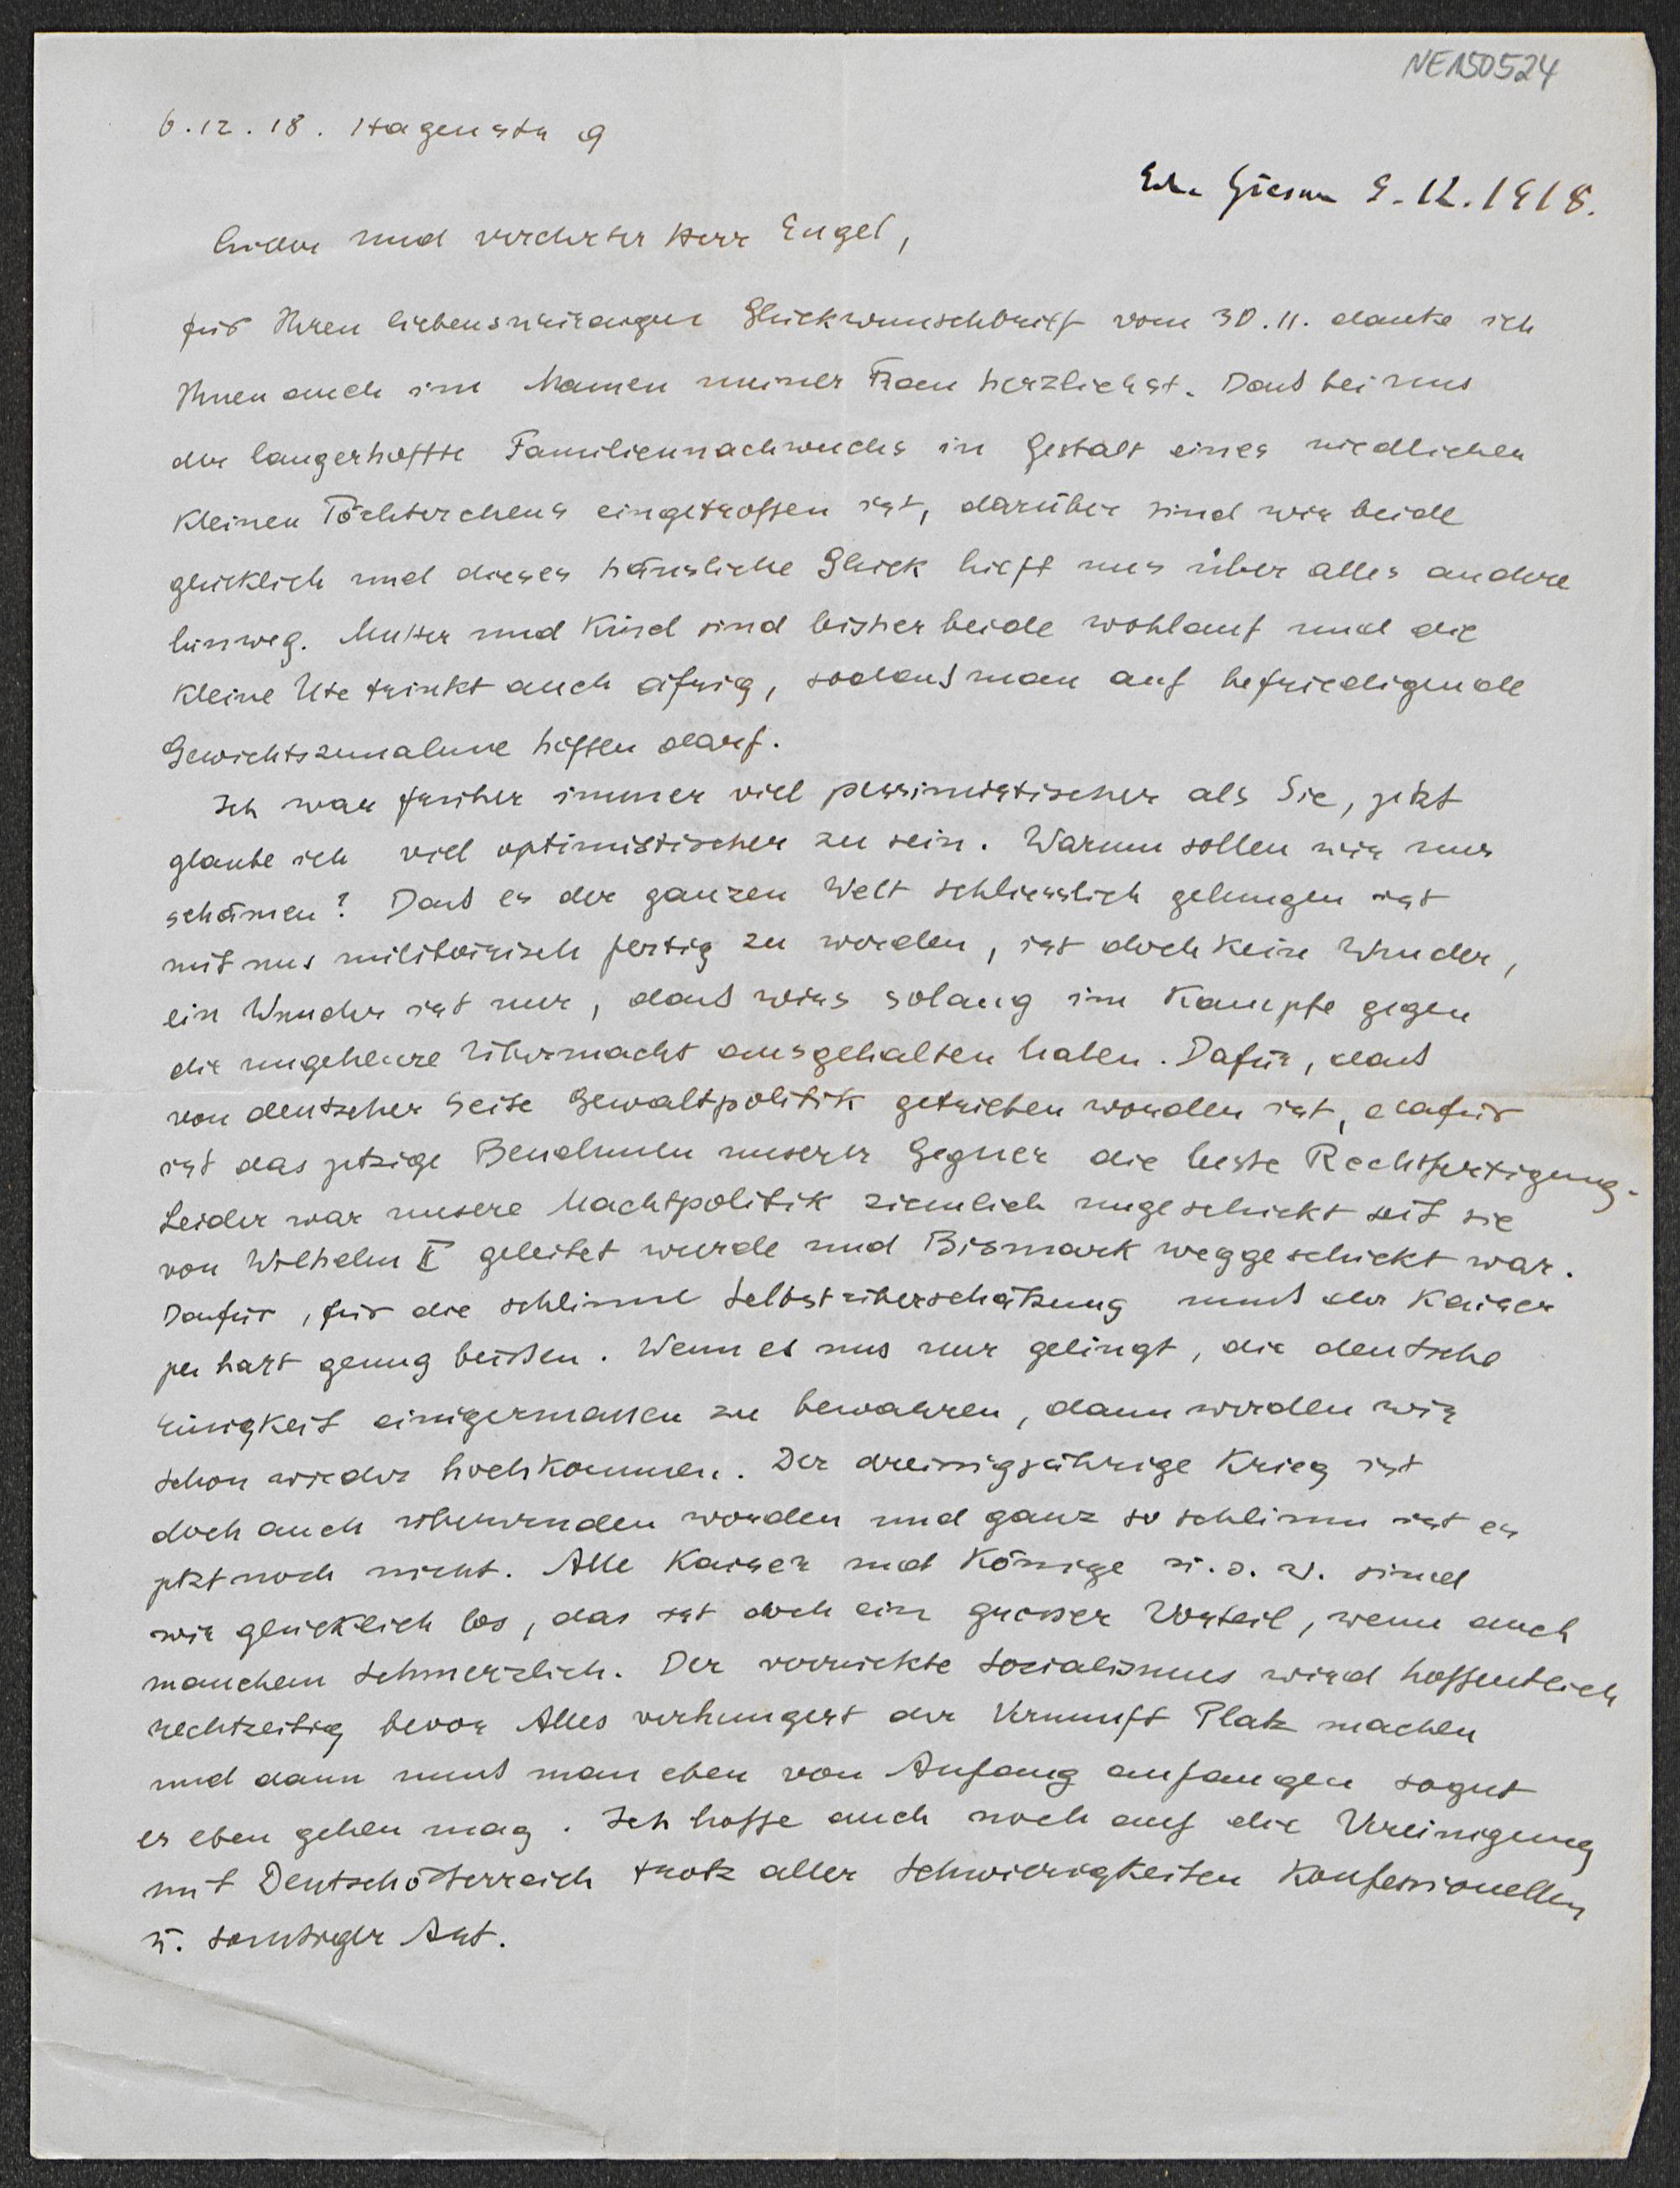 NE150524
6.12.18. Hagenstr 9
Erh. Giessen 9.12.1918.
Lieber und verehrter Herr Engel,
für Ihren liebenswürdigen Glückwunschbrief vom 30.11. danke ich
Ihnen auch im Namen meiner Frau herzlichst. Daß bei uns
der langerhoffte Familiennachwuchs in Gestalt eines niedlichen
kleinen Töchterchens eingetroffen ist, darüber sind wir beide
glücklich und dieses häusliche Glück hilft uns über alles andere
hinweg. Mutter und Kind sind bisher beide wohlauf und die
kleine Ute trinkt auch eifrig, sodaß man auf befriedigende
Gewichtszunahme hoffen darf.
Ich war früher immer viel pessimistischer als Sie, jetzt
glaube ich viel optimistischer zu sein. Warum sollen wir uns
schämen? Daß es der ganzen Welt schliesslich gelungen ist
mit uns militärisch fertig zu werden, ist doch kein Wunder,
ein Wunder ist nur, daß wirs solang im Kampfe gegen
die ungeheure Übermacht ausgehalten haben. Dafür, daß
von deutscher Seite Gewaltpolitik getrieben worden ist, dafür
ist das jetzige Benehmen unserer Gegner die beste Rechtfertigung.
Leider war unsere Machtpolitik ziemlich ungeschickt seit sie
von Wilhelm II geleitet wurde und Bismark weggeschickt war.
Dafür, für die schlimme Selbstüberschätzung muß der Kaiser
ja hart genug beißen. Wenn es uns nur gelingt, die deutsche
Einigkeit einigermassen zu bewahren, dann werden wir
schon wieder hochkommen. Der dreissigjährige Krieg ist
doch auch überwunden worden und ganz so schlimm ist es
jetzt noch nicht. Alle Kaiser und Könige u.s.w. sind
wir glücklich los, das ist doch ein grosser Vorteil, wenn auch
manchem schmerzlich. Der verrückte Socialismus wird hoffentlich
rechtzeitig bevor Alles verhungert der Vernunft Platz machen
und dann muß man eben von Anfang anfangen sogut
es eben gehen mag. Ich hoffe auch noch auf die Vereinigung
mit Deutschösterreich trotz aller Schwierigkeiten konfessioneller
u. sonstiger Art.